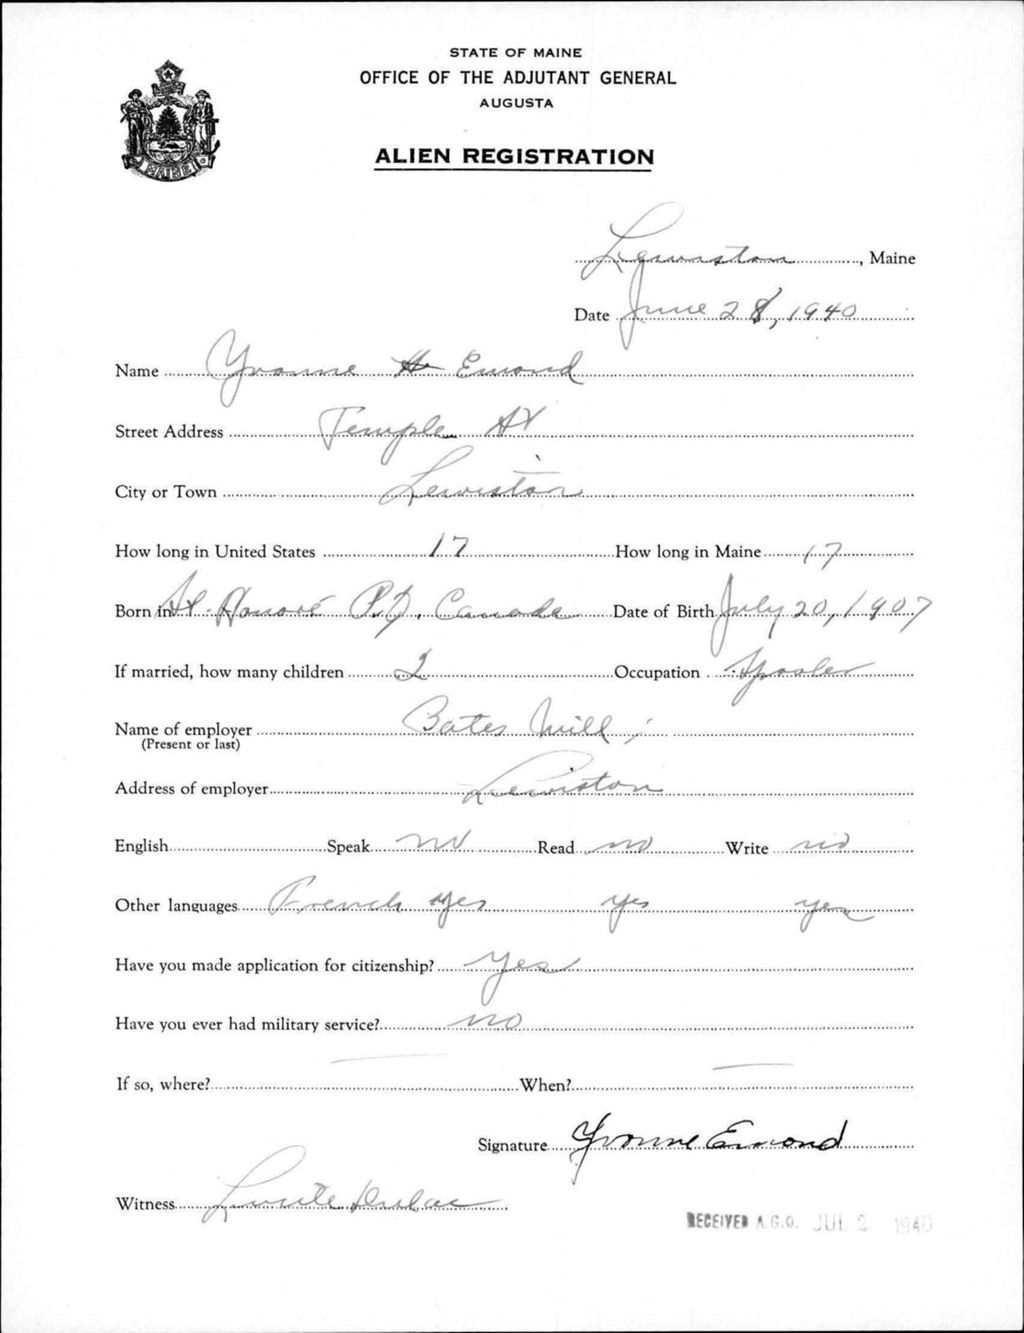 STATE OF MAINE
OFFICE OF THE ADJUTANT GENERAL
AUGUSTA
MAINE
ALIEN REGISTRATION
Lewiston, Maine
Date June 28, 1940
Name Yvonne H Emond
Street Address Temple St
City or Town Lewiston
How long in United States 17 How long in Maine 17
Born in St. Honoré P.Q. Canada Date of Birth July 20, 1907
If married, how many children 2 Occupation Spooler
Name of employer Bates Mill
(Present or last)
Address of employer Lewiston
English Speak no Read no Write no
Other languages French yes yes yes
Have you made application for citizenship? Yes
Have you ever had military service? no
If so, where? When?
Signature Yvonne Emond
Witness Dulac
RECEIVED A.G.O. JUL 2 1940